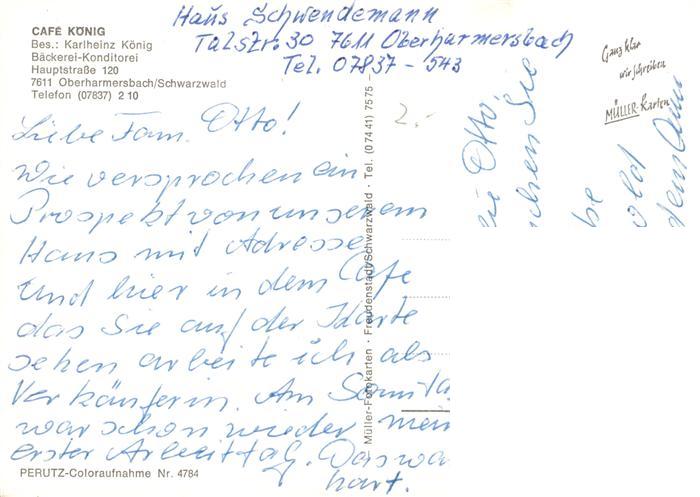 CAFÉ KÖNIG
Bes.: Karlheinz König
Bäckerei-Konditorei
Hauptstraße 120
7611 Oberharmersbach/Schwarzwald
Telefon (07837) 2 10
Haus Schwendemann
Talstr. 30 7611 Oberharmersbach
Tel. 07837 - 543
Ganz klar
wir schreiben
MÜLLER-Karten
2.-
Liebe Fam. Otto!
Wie versprochen ein
Prospekt von unserem
Haus mit Adresse
Und hier in dem Cafe
das Sie auf der Karte
sehen arbeite ich als
Verkäuferin. Am Sonnta
war schon wieder mein
erster Arbeittag. Das wa
hart.
Müller-Fotokarten · Freudenstadt/Schwarzwald · Tel. (0 74 41) 75 75
Otto,
chen Sie
PERUTZ-Coloraufnahme Nr. 4784